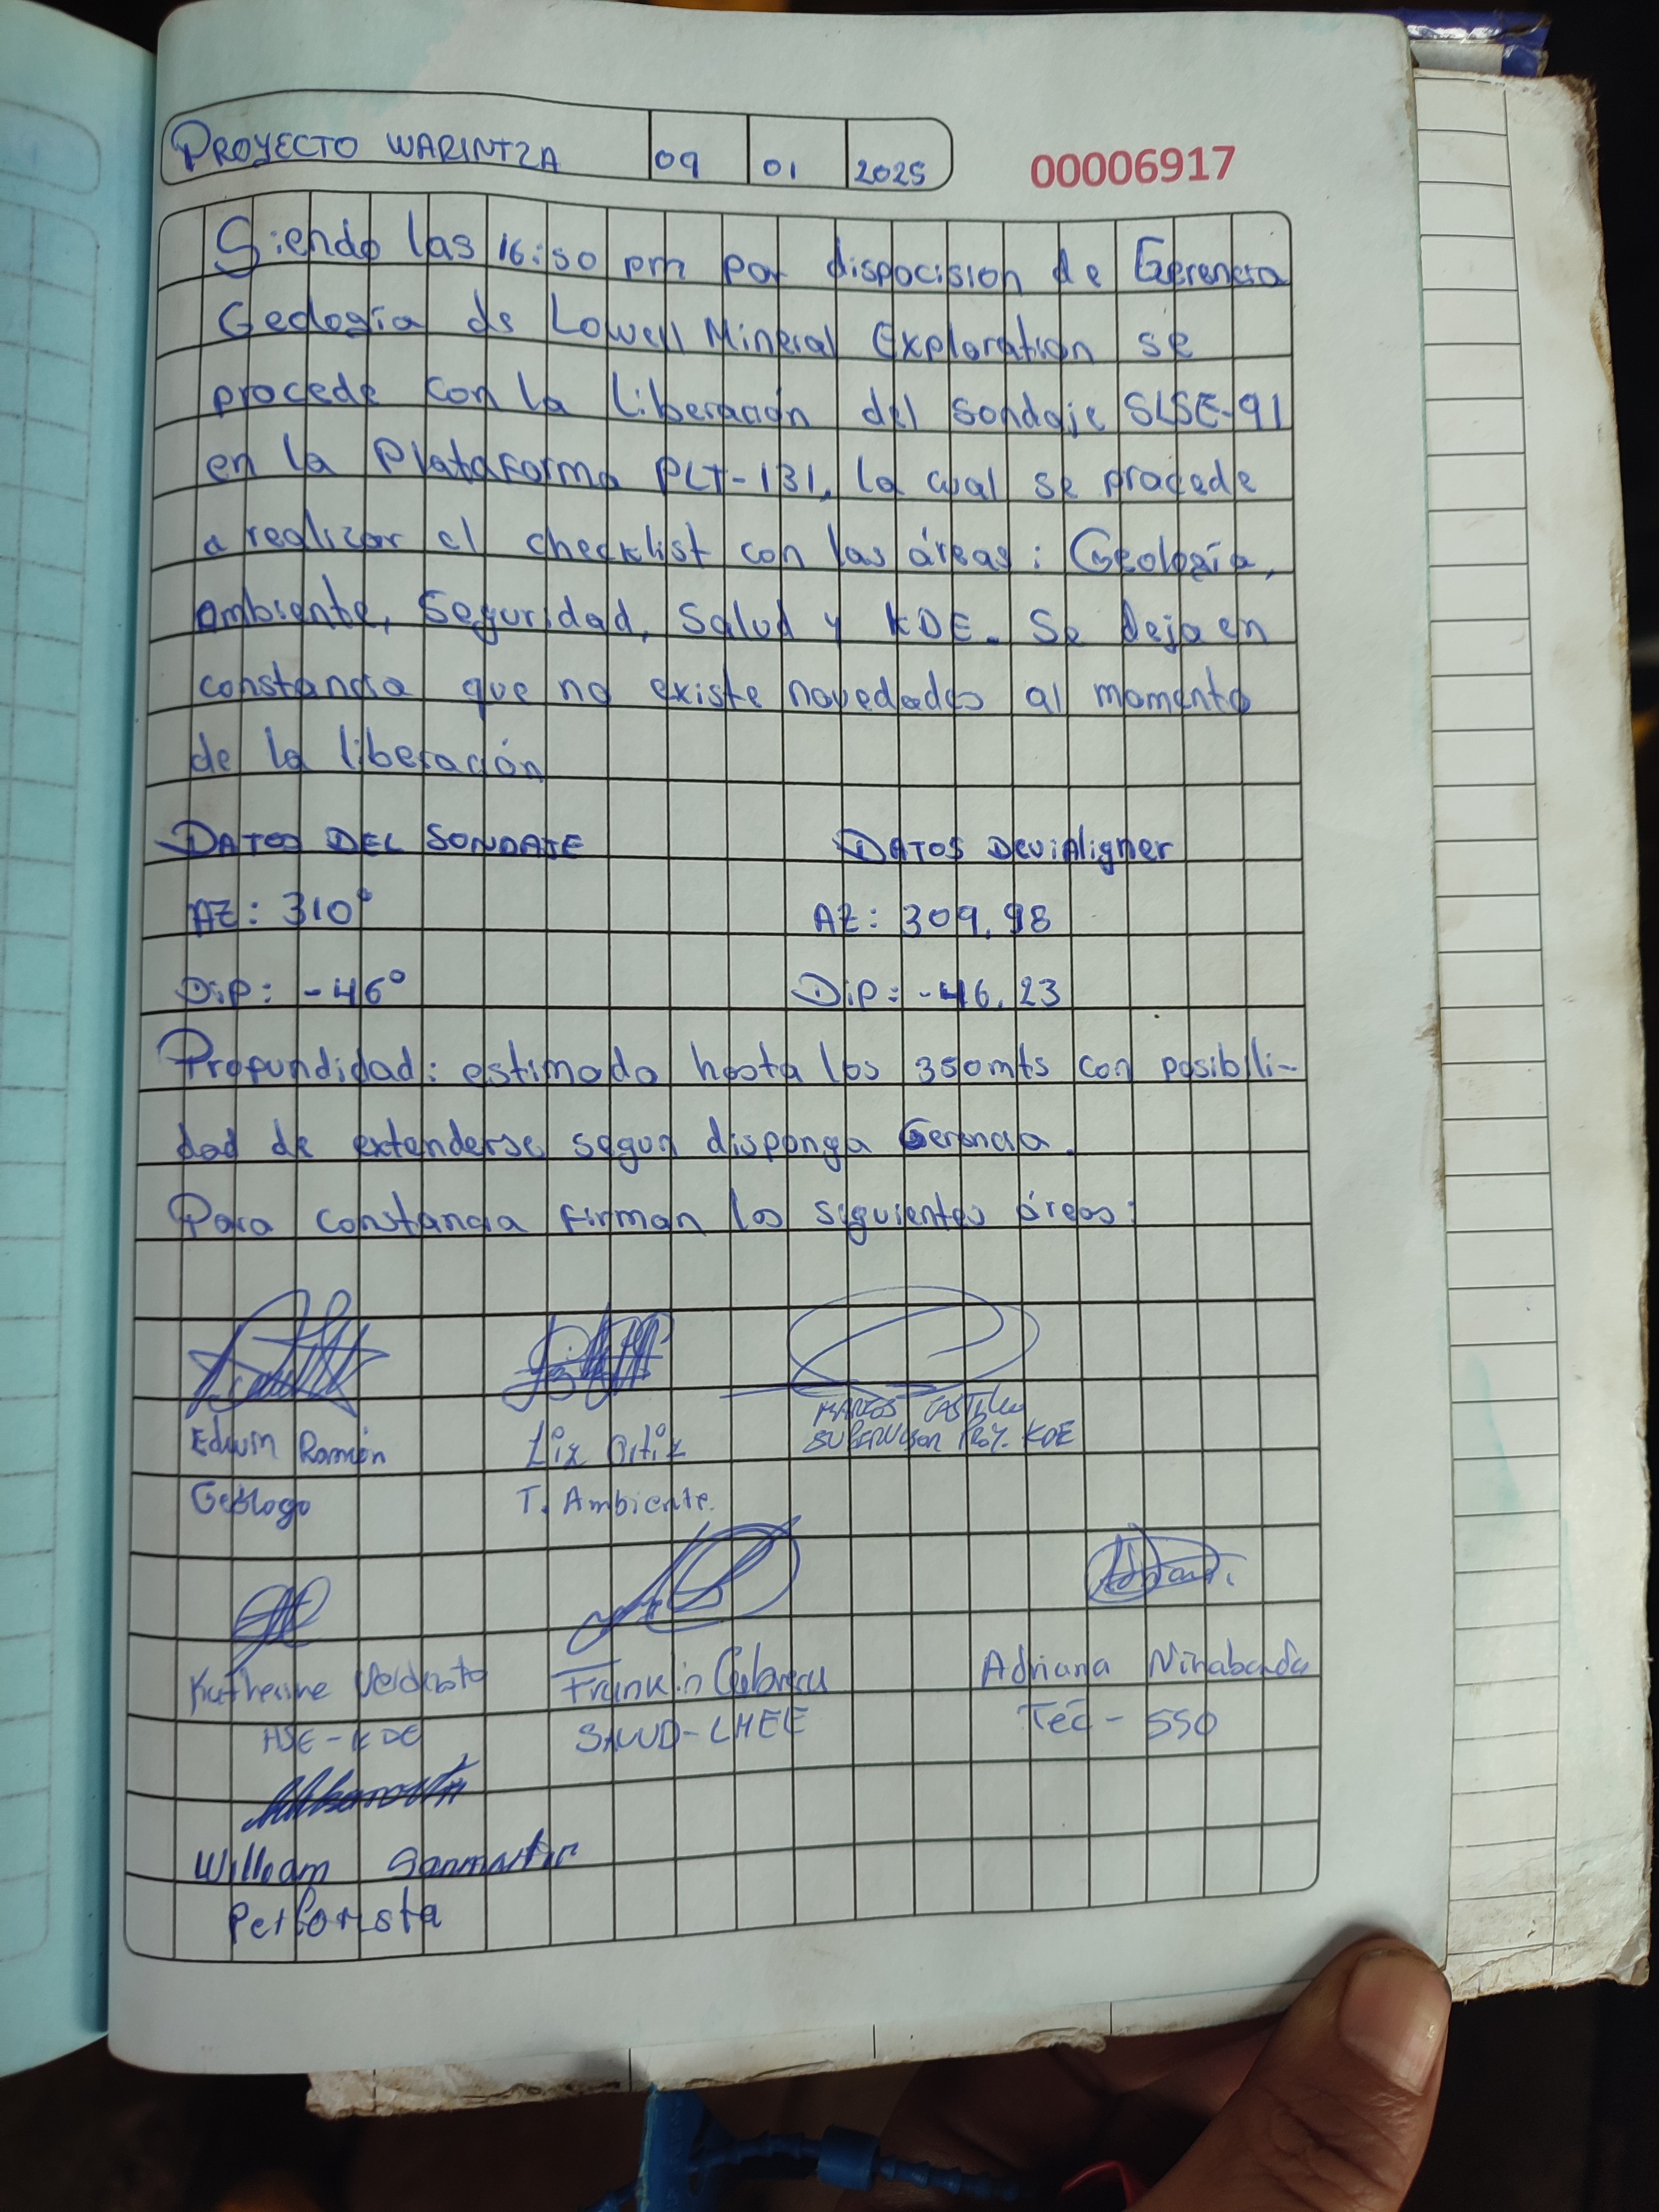 PROYECTO WARINTZA 09 01 2025 00006917
Siendo las 16:50 pm por dispocision de Gerencia
Geología de Lowell Mineral Exploration se
procede con la liberación del sondaje SLSE-91
en la Plataforma PLT-131, la cual se procede
a realizar el checklist con las áreas: Geología,
Ambiente, Seguridad, Salud y KDE. Se deja en
constancia que no existe novedades al momento
de la liberación
DATOS DEL SONDAJE DATOS DeviAligner
AZ: 310° AZ: 309.98
Dip: -46° Dip: -46.23
Profundidad: estimada hasta los 350mts con posibili-
dad de extenderse segun disponga Gerencia.
Para constancia firman las siguientes áreas:
Edwin Ramón Liz Ortiz MARCOS CASTILLO
SUPERVISOR PROY. KDE
Geólogo T. Ambiente.
Katherine Franklin Adriana Ninabanda
HSE-KDE SALUD-LMEE Tec - SSO
William Sanmartin
Perforista